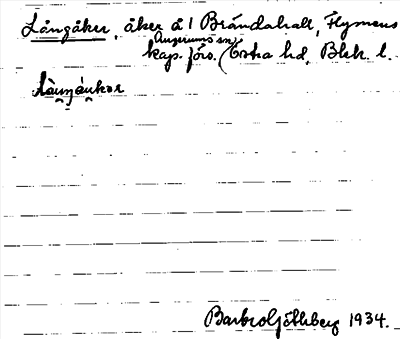 Långåker, åker å 1 Brändahalt, Flymens
kap. förs. (Augerums sn) Östra hd, Blek. l.
Barbro Göthberg 1934.